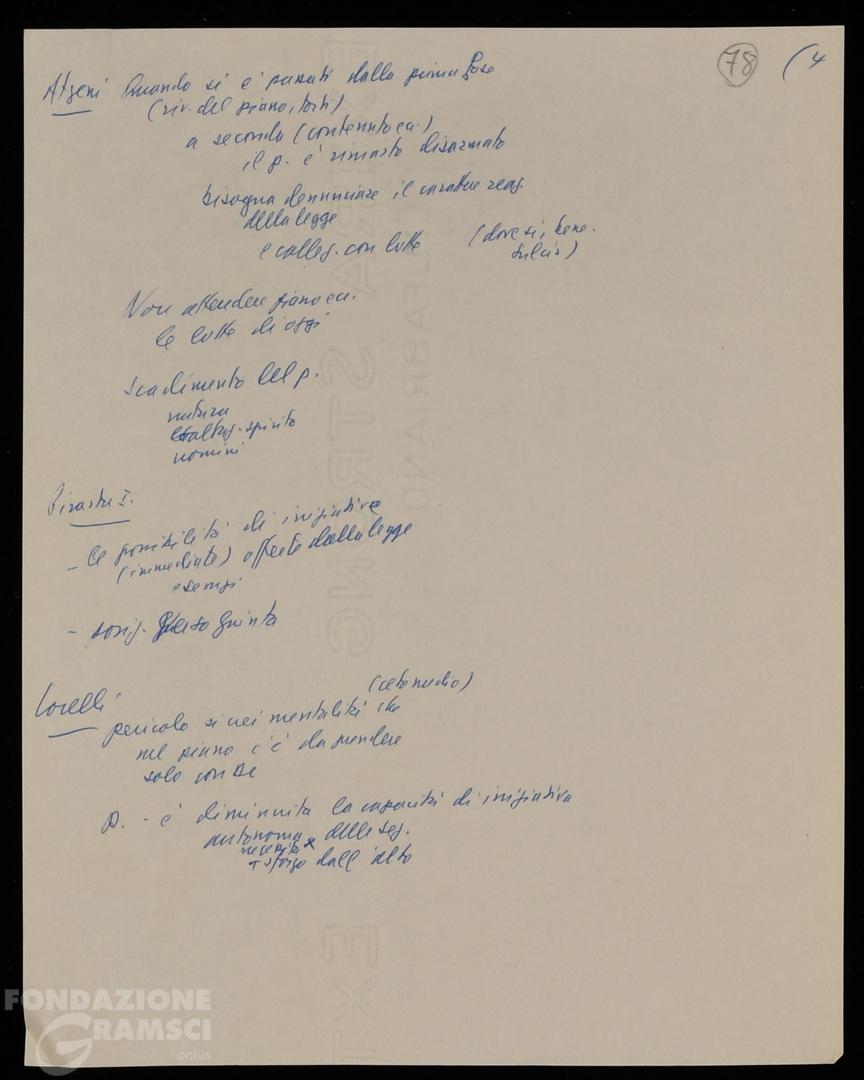 78 (4
Atzeni Quando si è passati dalla prima fase
(riv. del piano, torti)
a seconda (contenuto ec.)
il p. è rimasto disarmato
bisogna denunciare il carattere reaz.
della legge
e colleg. con lotte (dove si, bene.
Sulcis)
Non attendere piano ec.
le lotte di oggi
Scadimento del p.
natura
spirito
uomini
Pirastu I.
- le possibilità di iniziativa
(immediate) offerte dalla legge
esempi
- Quinta
Lorelli (ceto medio)
pericolo si crei mentalità che
nel piano c'è da prendere
solo con DC
p. - è diminuita la capacità di iniziativa
autonoma delle sez.
necessità
+ sforzo dall'alto
FONDAZIONE
GRAMSCI
onlus
EXTRA STRONG
FABRIANO
EXT